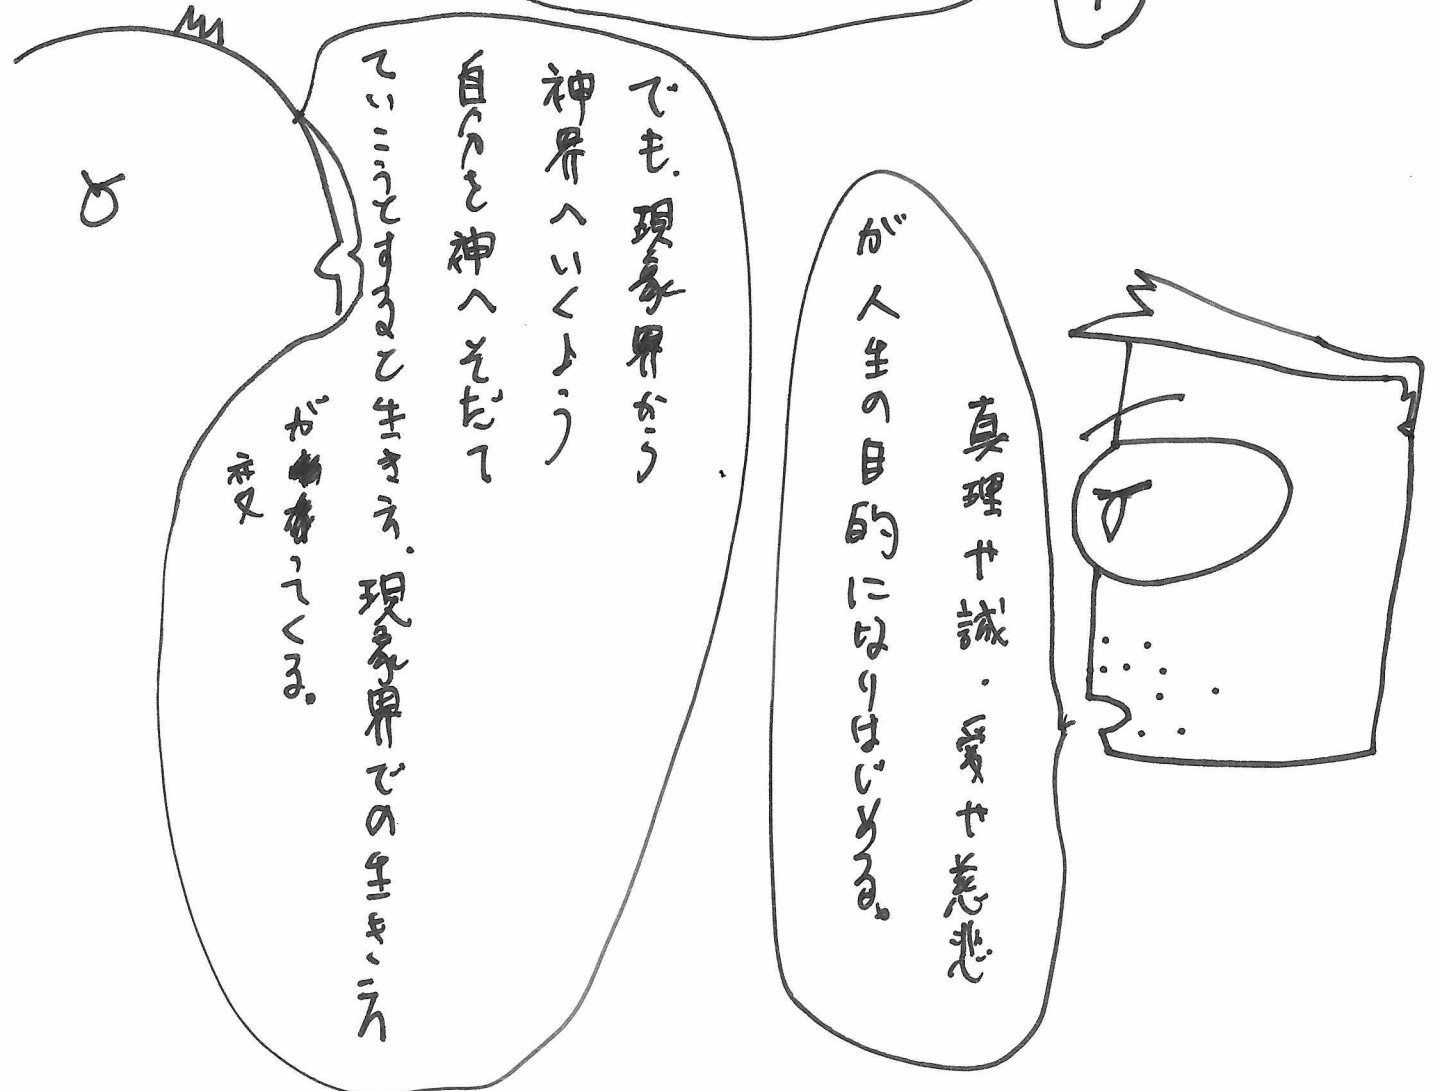 真理や誠・愛や慈悲
が人生の目的になりはじめる。
でも、現象界から
神界へいくよう
自分を神へそだて
ていこうとすると生き方、現象界での生き方
が変ってくる。